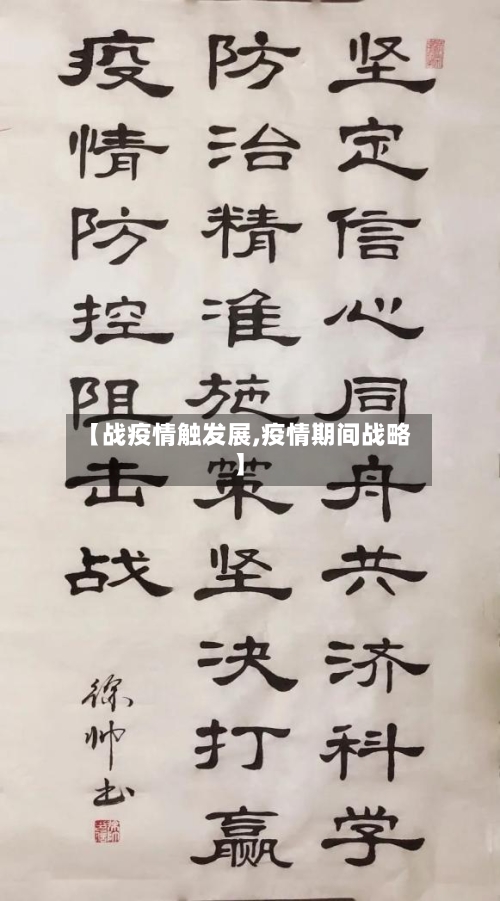 坚定信心同舟共济科学
防治精准施策坚决打赢
疫情防控阻击战
徐帅书
【战疫情触发展,疫情期间战略
】